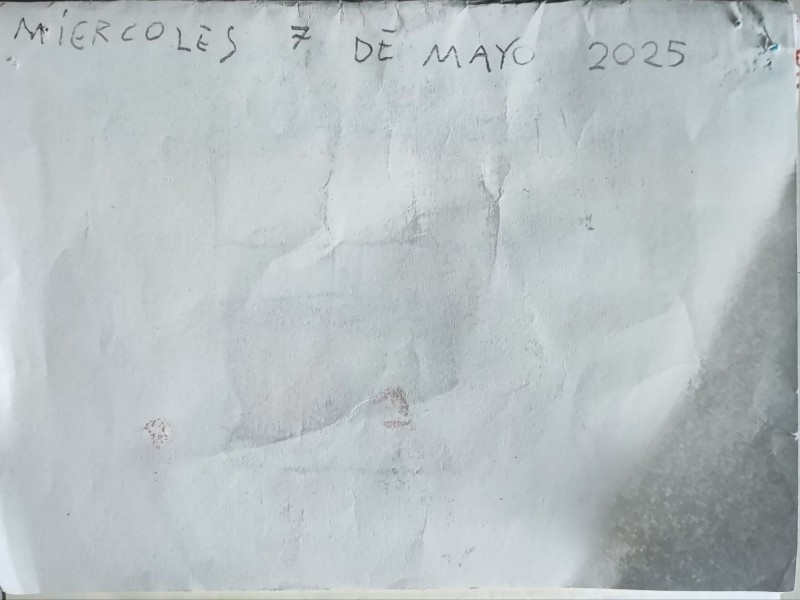 MÍERCOLÈS 7 DĒ MAYO 2025